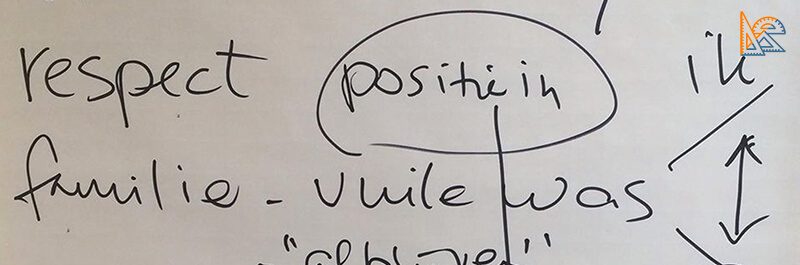 respect positie in ik
familie - vuile was